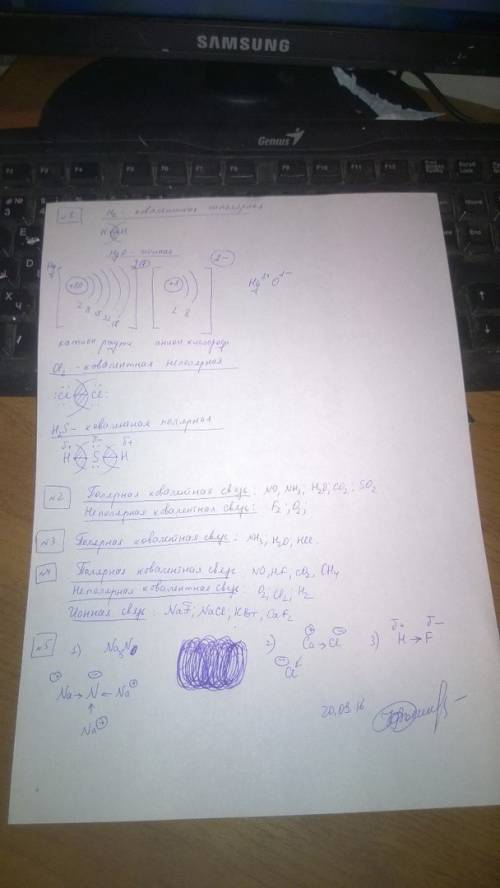 SAMSUNG
Genius
№1 H₂ - ковалентная неполярная
H H
HgO - ионная
Hg +80 2 8 18 32 18 2+ +8 2 8 2- Hg²⁺O²⁻
катион ртути анион кислорода
Cl₂ - ковалентная неполярная
:Cl Cl:
H₂S - ковалентная полярная
δ+ δ- δ+
H S H
№2 Полярная ковалентная связь: NO, NH₃, H₂O, CO₂, SO₂
Неполярная ковалентная связь: F₂, O₂,
№3 Полярная ковалентная связь: NH₃, H₂O, HCl.
№4 Полярная ковалентная связь: NO, HF, CO₂, CH₄
Неполярная ковалентная связь: O₂, Cl₂, H₂
Ионная связь: NaF, NaCl, KBr, CaF₂
№5 1) Na₃N 2) Ca→Cl 3) H→F
+ - δ+ δ-
Cl
Na→N←Na
↑
Na
20.09.16